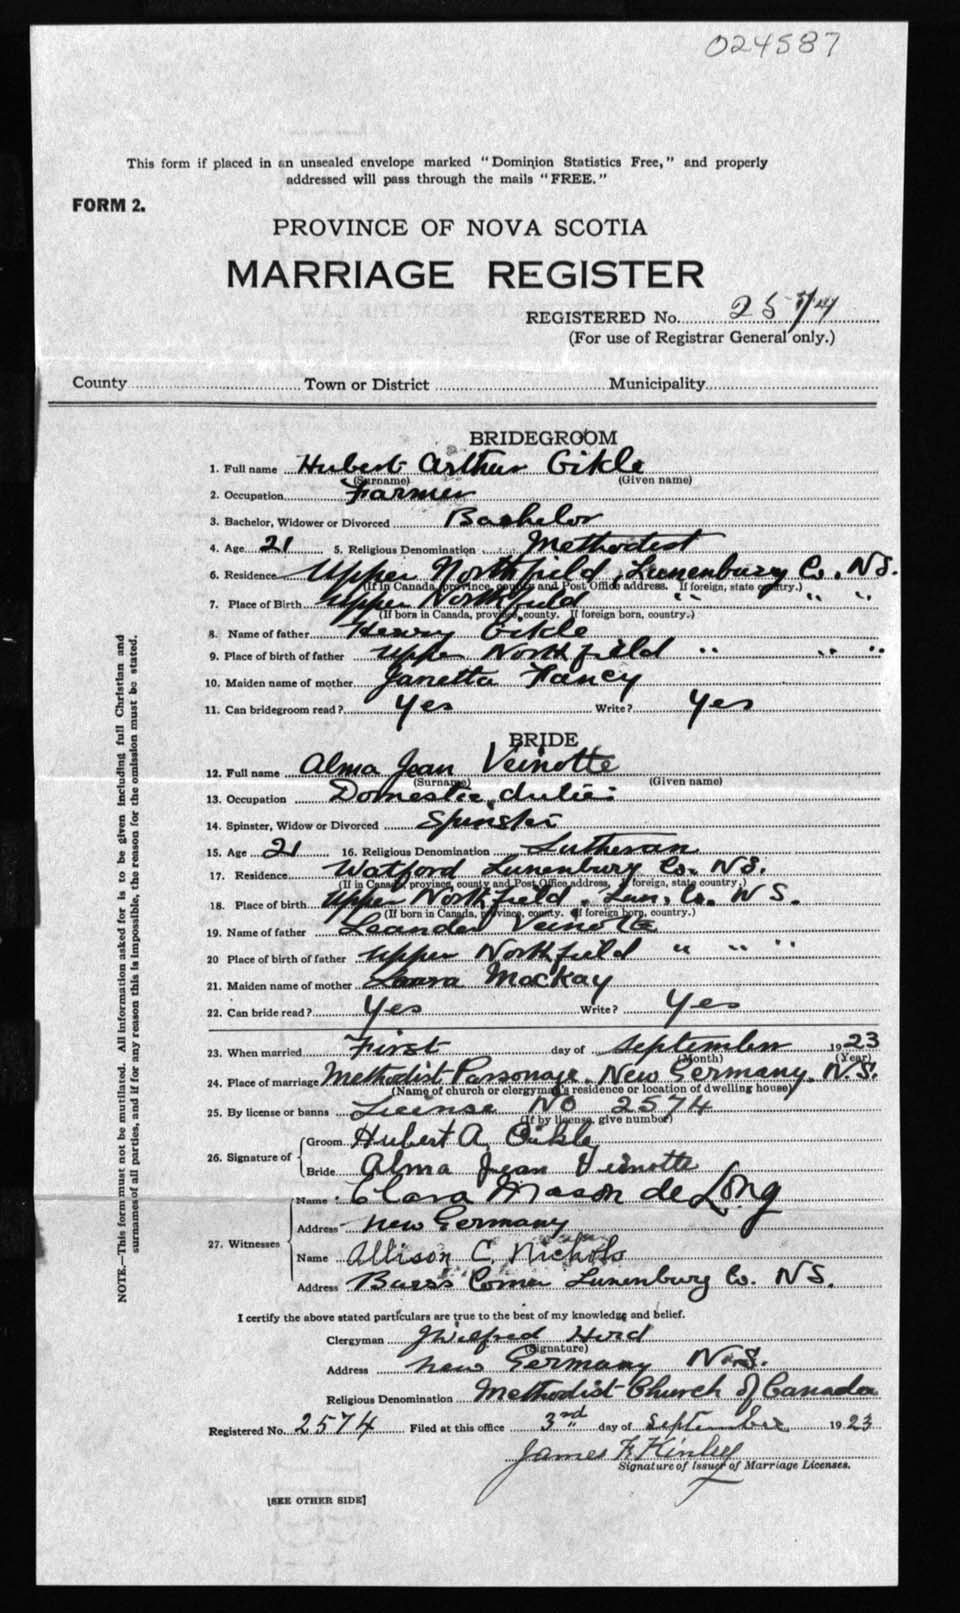 024587
This form if placed in an unsealed envelope marked "Dominion Statistics Free," and properly
addressed will pass through the mails "FREE."
FORM 2.
PROVINCE OF NOVA SCOTIA
MARRIAGE REGISTER
REGISTERED No. 2574
(For use of Registrar General only.)
County Town or District Municipality
BRIDEGROOM
1. Full name Hubert Arthur Oikle
(Surname) (Given name)
2. Occupation Farmer
3. Bachelor, Widower or Divorced Bachelor
4. Age 21 5. Religious Denomination Methodist
6. Residence Upper Northfield, Lunenburg Co. N.S.
(If in Canada, province, county and Post Office address. If foreign, state country.)
7. Place of Birth Upper Northfield " " "
(If born in Canada, province, county. If foreign born, country.)
8. Name of father Henry Oikle
9. Place of birth of father Upper Northfield " " "
10. Maiden name of mother Janetta Fancy
11. Can bridegroom read? Yes Write? Yes
BRIDE
12. Full name Alma Jean Veinotte
(Surname) (Given name)
13. Occupation Domestic duties
14. Spinster, Widow or Divorced Spinster
15. Age 21 16. Religious Denomination Lutheran
17. Residence Watford Lunenburg Co. N.S.
(If in Canada, province, county and Post Office address, If foreign, state country.)
18. Place of birth Upper Northfield, Lun. Co. N.S.
(If born in Canada, province, county. If foreign born, country.)
19. Name of father Leander Veinotte
20 Place of birth of father Upper Northfield " " "
21. Maiden name of mother Laura MacKay
22. Can bride read? Yes Write? Yes
23. When married First day of September 1923
(Month) (Year)
24. Place of marriage Methodist Parsonage, New Germany, N.S.
(Name of church or clergyman's residence or location of dwelling house)
25. By license or banns License No 2574
(If by license, give number)
26. Signature of Groom Hubert A. Oikle
Bride Alma Jean Veinotte
27. Witnesses Name Clara Mason deLong
Address New Germany
Name Allison C. Nichols
Address Barss Corner Lunenburg Co. N.S.
I certify the above stated particulars are true to the best of my knowledge and belief.
Clergyman J Wilfred Hird
(Signature)
Address New Germany N.S.
Religious Denomination Methodist Church of Canada
Registered No. 2574 Filed at this office 3rd day of September 1923
James F. Kinley
Signature of Issuer of Marriage Licenses.
[SEE OTHER SIDE]
NOTE.—This form must not be mutilated. All information asked for is to be given including full Christian and
surnames of all parties, and if for any reason this is impossible, the reason for the omission must be stated.